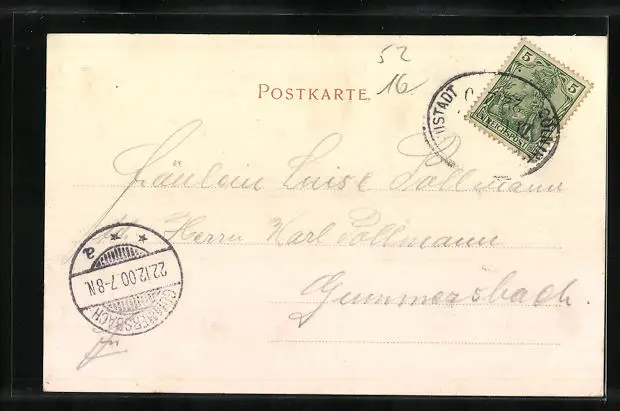 52
16
POSTKARTE.
5 5
REICHSPOST
Fräulein Luise Pollmann
Herrn Karl Pollmann
Gummersbach.
GUMMERSBACH
22.12.00.7-8N.
a